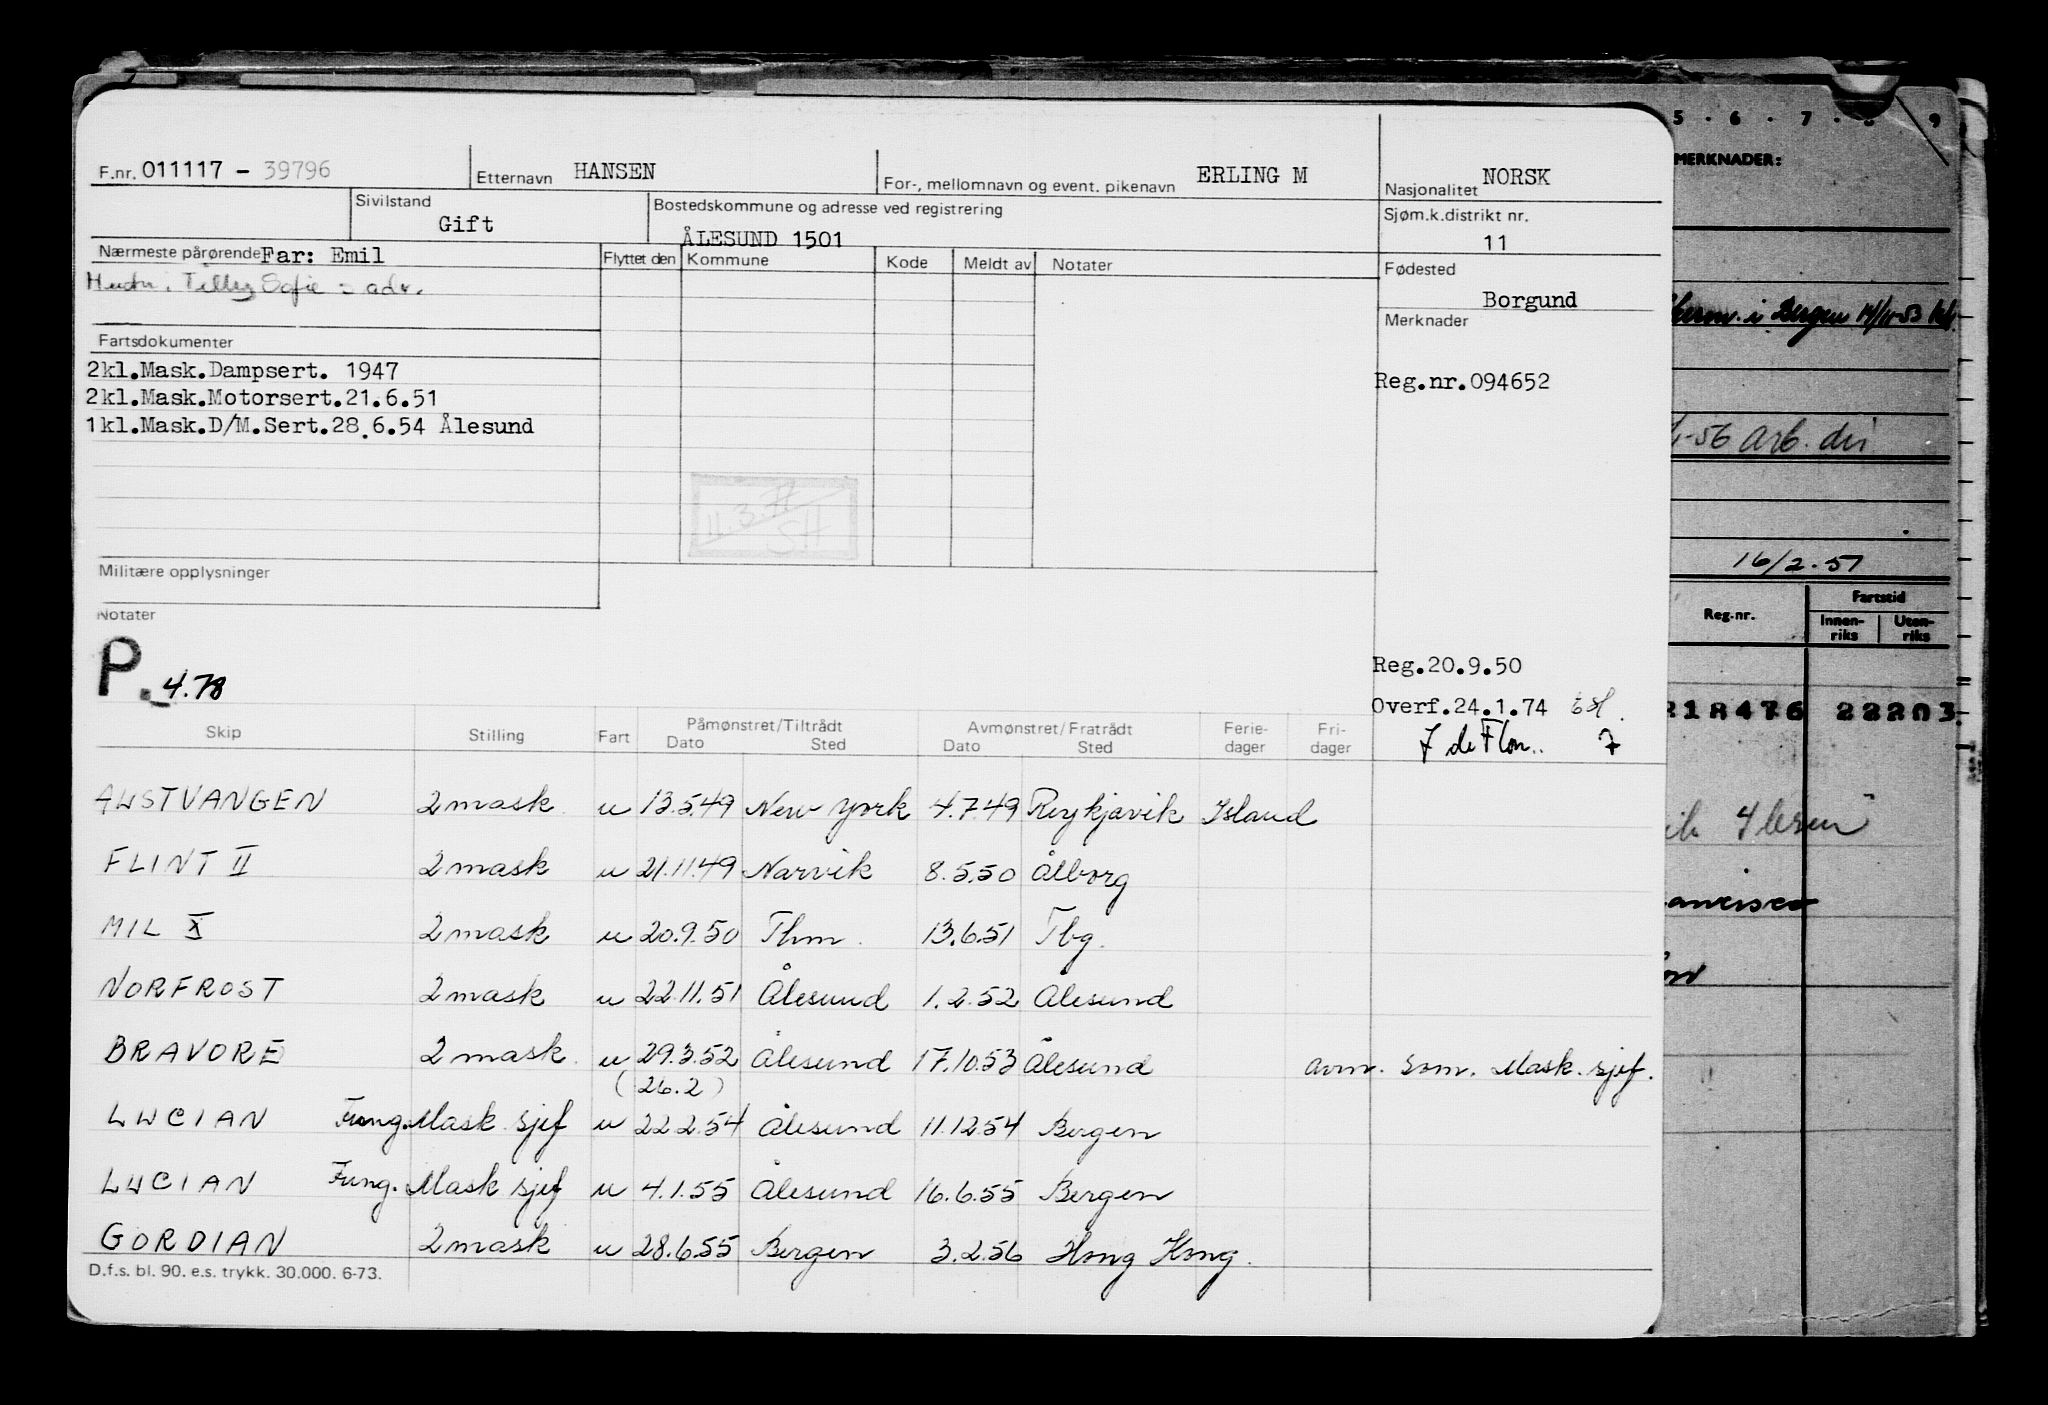 F.nr. 011117 - 39796 Etternavn HANSEN For-, mellomnavn og event. pikenavn ERLING M Nasjonalitet NORSK
Sivilstand Gift Bostedskommune og adresse ved registrering ÅLESUND 1501 Sjøm.k.distrikt nr. 11
Nærmeste pårørende Far: Emil Flyttet den Kommune Kode Meldt av Notater Fødested
Hustr. Tilly Sofie = adr. Borgund
Fartsdokumenter Merknader
2kl.Mask.Dampsert. 1947 Reg.nr.094652
2kl.Mask.Motorsert.21.6.51
1kl.Mask.D/M.Sert.28.6.54 Ålesund
SH
Militære opplysninger
Notater
P. 4.78
Reg.20.9.50
Overf.24.1.74
Skip Stilling Fart Påmønstret/Tiltrådt Dato Sted Avmønstret/Fratrådt Dato Sted Ferie-dager Fri-dager
AUSTVANGEN 2 mask u 13.5.49 New York 4.7.49 Reykjavik Island
FLINT II 2 mask u 21.11.49 Narvik 8.5.50 Ålborg
MIL X 2 mask u 20.9.50 Thm. 13.6.51 Tbg.
NORFROST 2 mask u 22.11.51 Ålesund 1.2.52 Ålesund
BRAVORE 2 mask. u 29.3.52 Ålesund 17.10.53 Ålesund avm. som. Mask.sjef.
(26.2)
LUCIAN Fung. Mask.sjef u 22.2.54 Ålesund 11.12.54 Bergen
LUCIAN Fung. Mask sjef u 4.1.55 Ålesund 16.6.55 Bergen
GORDIAN 2 mask u 28.6.55 Bergen 3.2.56 Hong Kong.
D.f.s. bl. 90. e.s. trykk. 30.000. 6-73.
5 · 6 · 7 · 8 · 9
MERKNADER:
i Bergen
-56 arb. dir
16/2-51
Reg.-nr. Fartstid
Innen-riks Uten-riks
218476 22203